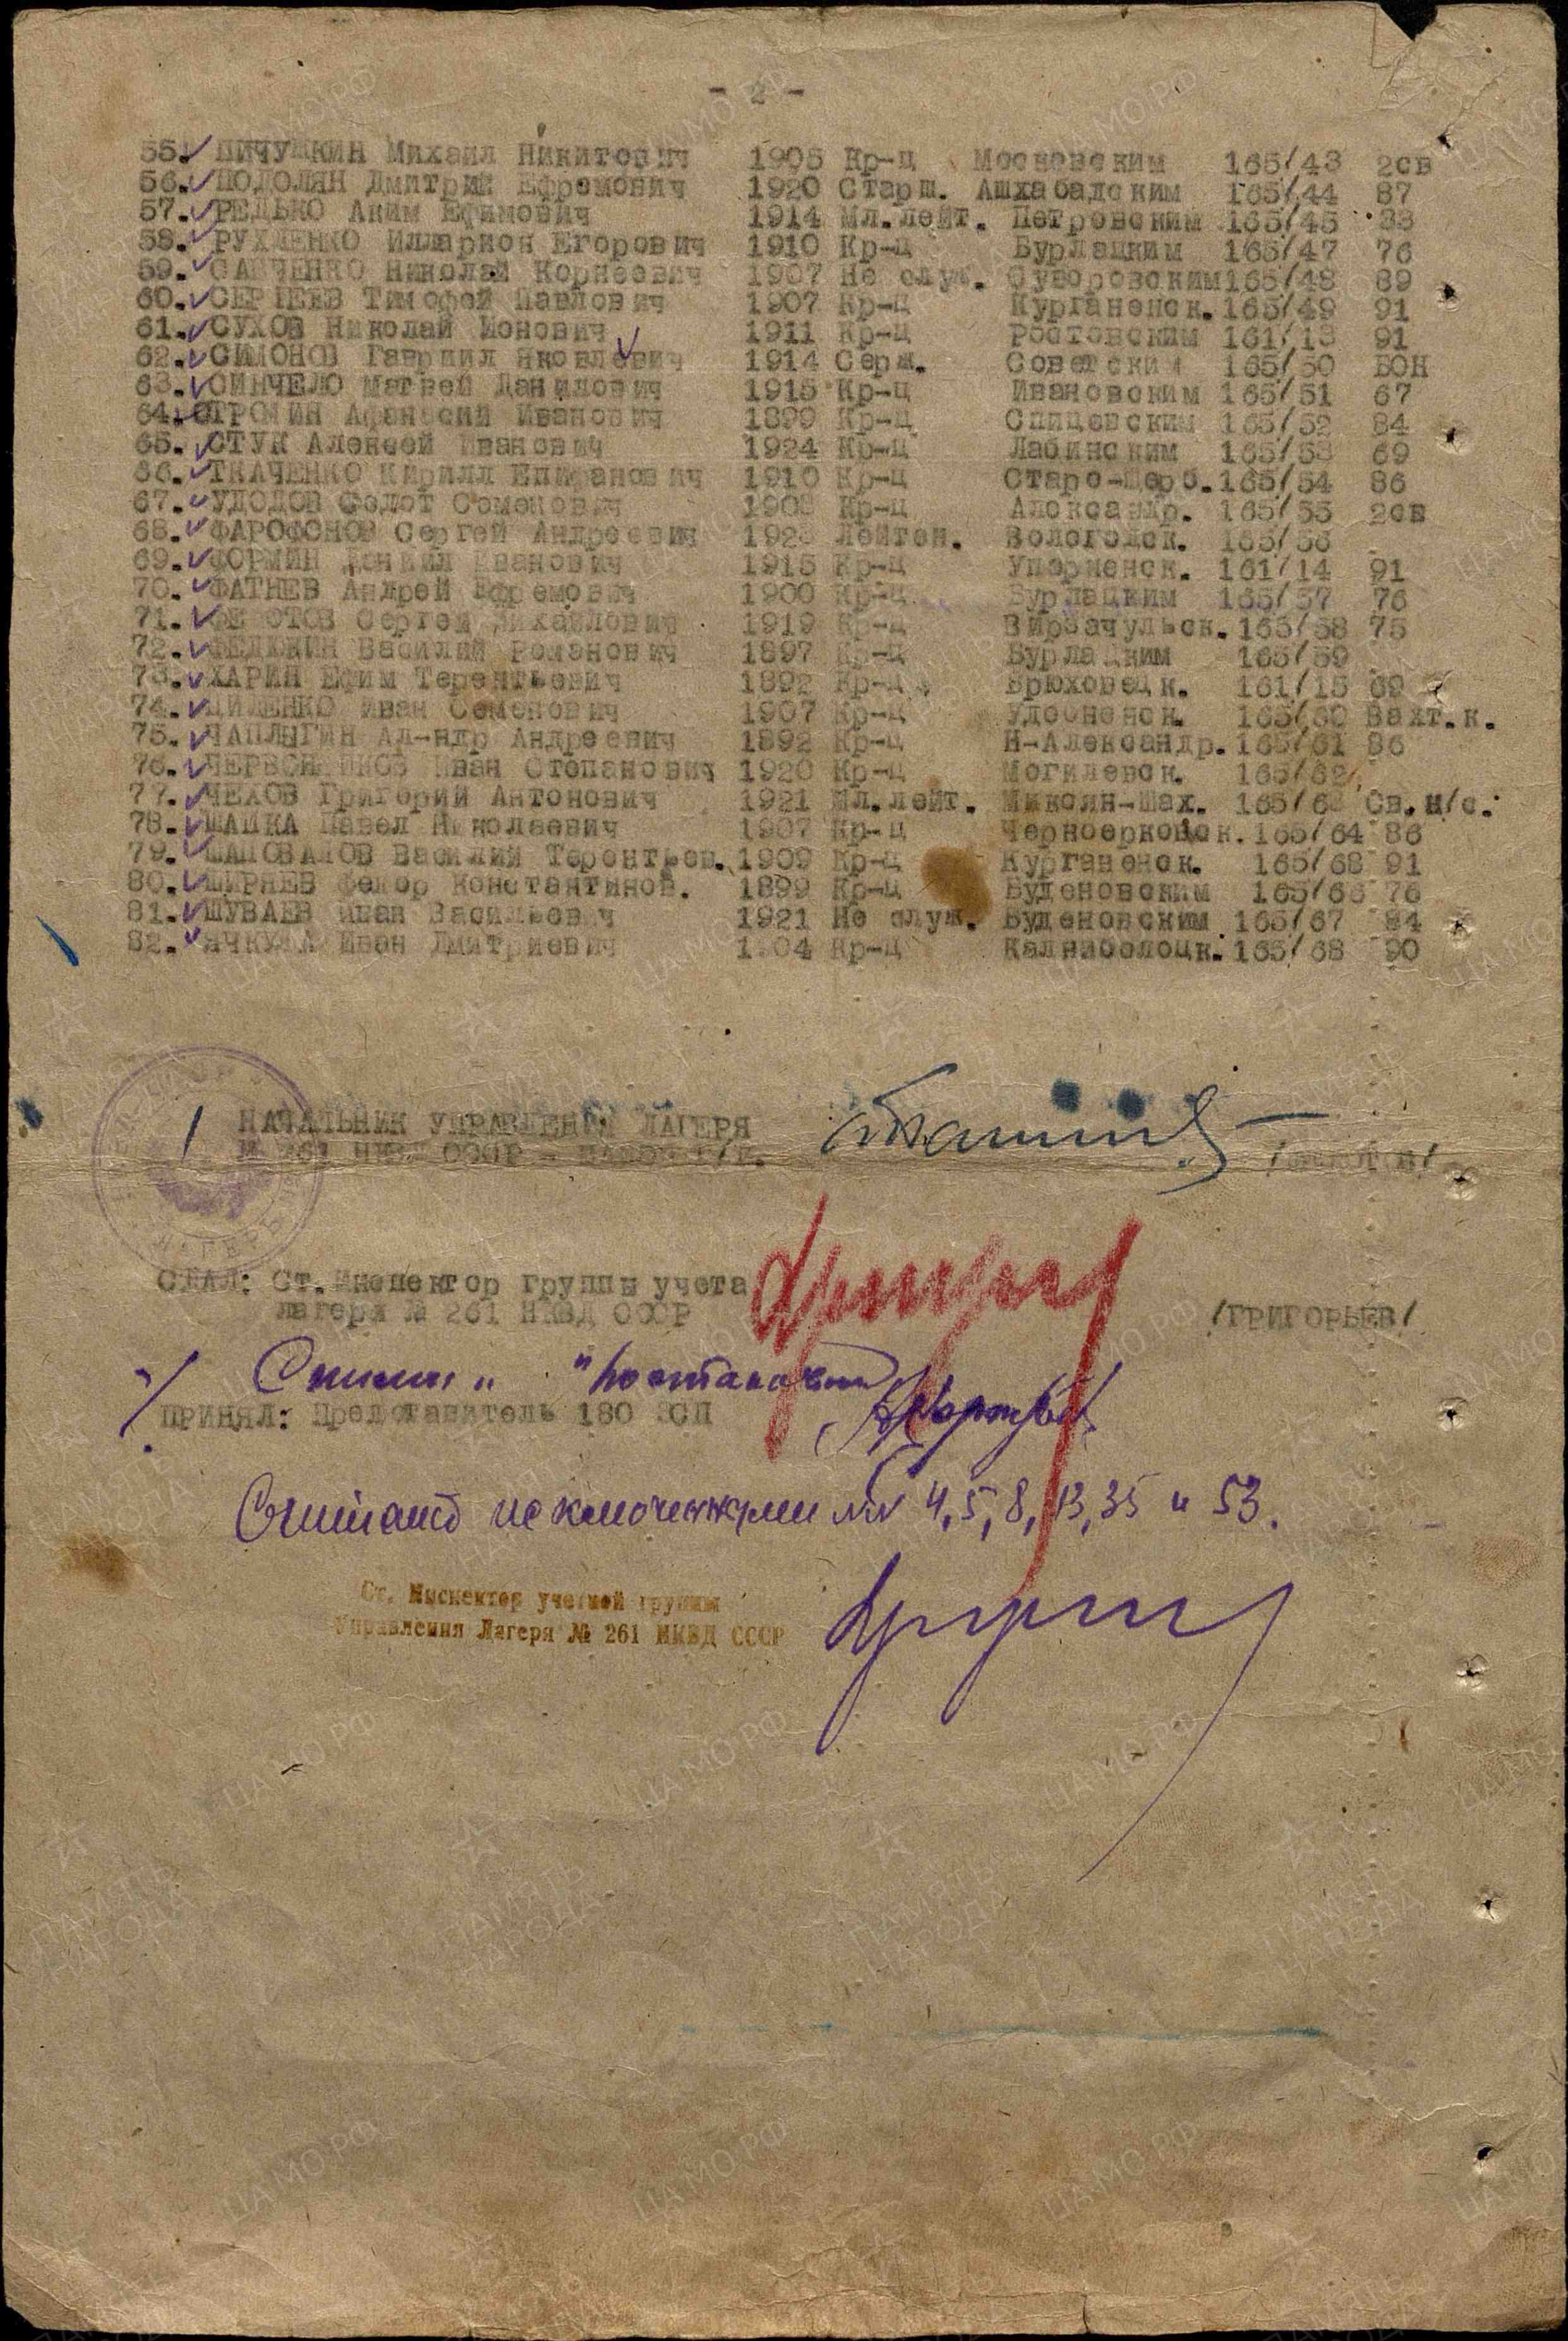 - 2 -
55. ПИЧУШКИН Михаил Никитович 1905 Кр-ц Московским 165/43 2св
56. ПОДОЛЯН Дмитрий Ефремович 1920 Старш. Ашхабадским 165/44 87
57. РЕДЬКО Аким Ефимович 1914 Мл.лейт. Петровским 165/45 83
58. РУХЛЕНКО Илларион Егорович 1910 Кр-ц Бурлацким 165/47 76
59. САВЧЕНКО Николай Корнеевич 1907 Не служ. Суворовским 165/48 89
60. СЕРГЕЕВ Тимофей Павлович 1907 Кр-ц Курганенск. 165/49 91
61. СУХОВ Николай Ионович 1911 Кр-ц Ростовским 161/13 91
62. СИМОНОВ Гавриил Яковлевич 1914 Серж. Советским 165/50 БОН
63. СИНЧЕЛО Матвей Данилович 1915 Кр-ц Ивановским 165/51 67
64. СТРОМИН Афанасий Иванович 1899 Кр-ц Спицевским 165/52 84
65. СТУК Алексей Иванович 1924 Кр-ц Лабинским 165/53 69
66. ТКАЧЕНКО Кирилл Епифанович 1910 Кр-ц Старо-Щерб. 165/54 86
67. УДОДОВ Федот Семенович 1908 Кр-ц Александр. 165/55 2св
68. ФАРОФОНОВ Сергей Андреевич 192 Лейтен. Вологодск. 165/56
69. ФОРМИН Даниил Иванович 1915 Кр-ц Упорненск. 161/14 91
70. ФАТНЕВ Андрей Ефремович 1900 Кр-ц Бурлацким 165/57 76
71. ФЕДОТОВ Сергей Михайлович 1919 Кр-ц 165/58 75
72. ФЕДЮКИН Василий Романович 1897 Кр-ц Бурлацким 165/59
73. ХАРИН Ефим Терентьевич 1892 Кр-ц Брюховецк. 161/15 69
74. ЦИЛЕНКО Иван Семенович 1907 Кр-ц Удобненск. 165/60 Вахт.к.
75. ЧАПЛЫГИН Ал-ндр Андреевич 1892 Кр-ц Н-Александр. 165/61 86
76. ЧЕРВОННИКОВ Иван Степанович 1920 Кр-ц Могилевск. 165/62
77. ЧЕХОВ Григорий Антонович 1921 Мл.лейт. Микоян-Шах. 165/63 Св.н/с.
78. ШАПКА Павел Николаевич 1907 Кр-ц Черноерковск. 165/64 86
79. ШАПОВАЛОВ Василий Терентьев. 1909 Кр-ц Курганенск. 165/68 91
80. ШИРЯЕВ Федор Константинов. 1899 Кр-ц Буденовским 165/66 76
81. ШУВАЕВ Иван Васильевич 1921 Не служ. Буденовским 165/67 84
82. ЯЧКУЛА Иван Дмитриевич 1.04 Кр-ц Калниболоцк. 165/68 90
НАЧАЛЬНИК УПРАВЛЕНИЯ ЛАГЕРЯ
№ 261 НКВД СССР -
СДАЛ: Ст. Инспектор группы учета
лагеря № 261 НКВД СССР /ГРИГОРЬЕВ/
ПРИНЯЛ: Представитель 180 ЗСП
Считать исключенными №№ 4, 5, 8, 13, 35 и 53.
Ст. Инспектор учетной группы
Управления Лагеря № 261 НКВД СССР
ЦАМО.РФ
ПАМЯТЬ
НАРОДА